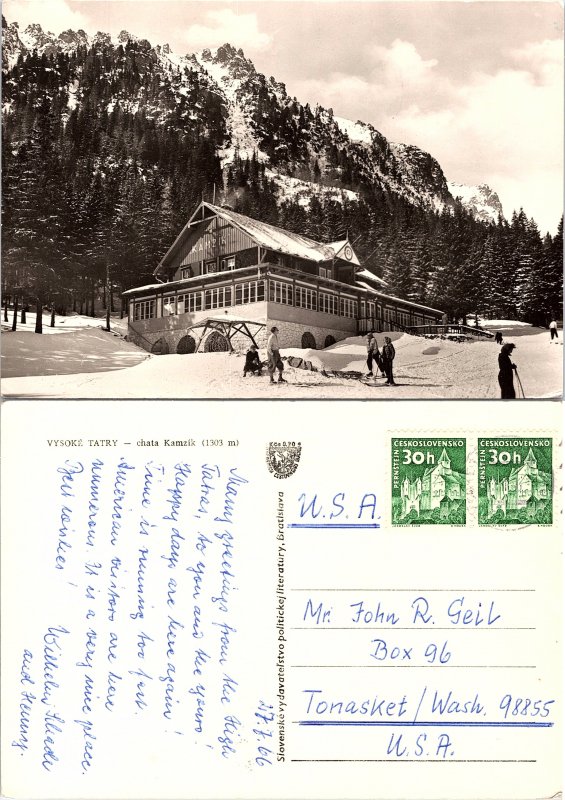 VYSOKÉ TATRY — chata Kamzík (1303 m)
Kčs 0,70
ČESKOSLOVENSKO
30h
PERNŠTEJN
ČESKOSLOVENSKO
30h
PERNŠTEJN
U.S.A.
Mr. John R. Geil
Box 96
Tonasket/Wash. 98855
U.S.A.
Slovenské vydavateľstvo politickej literatúry, Bratislava
27.7.66
Many greetings from the High
Tatras, to you and the yours!
Happy days are here again!
Time is running too fast.
American visitors are here
numerous. It is a very nice place.
Best wishes!
Wilhelm
and Jenny.